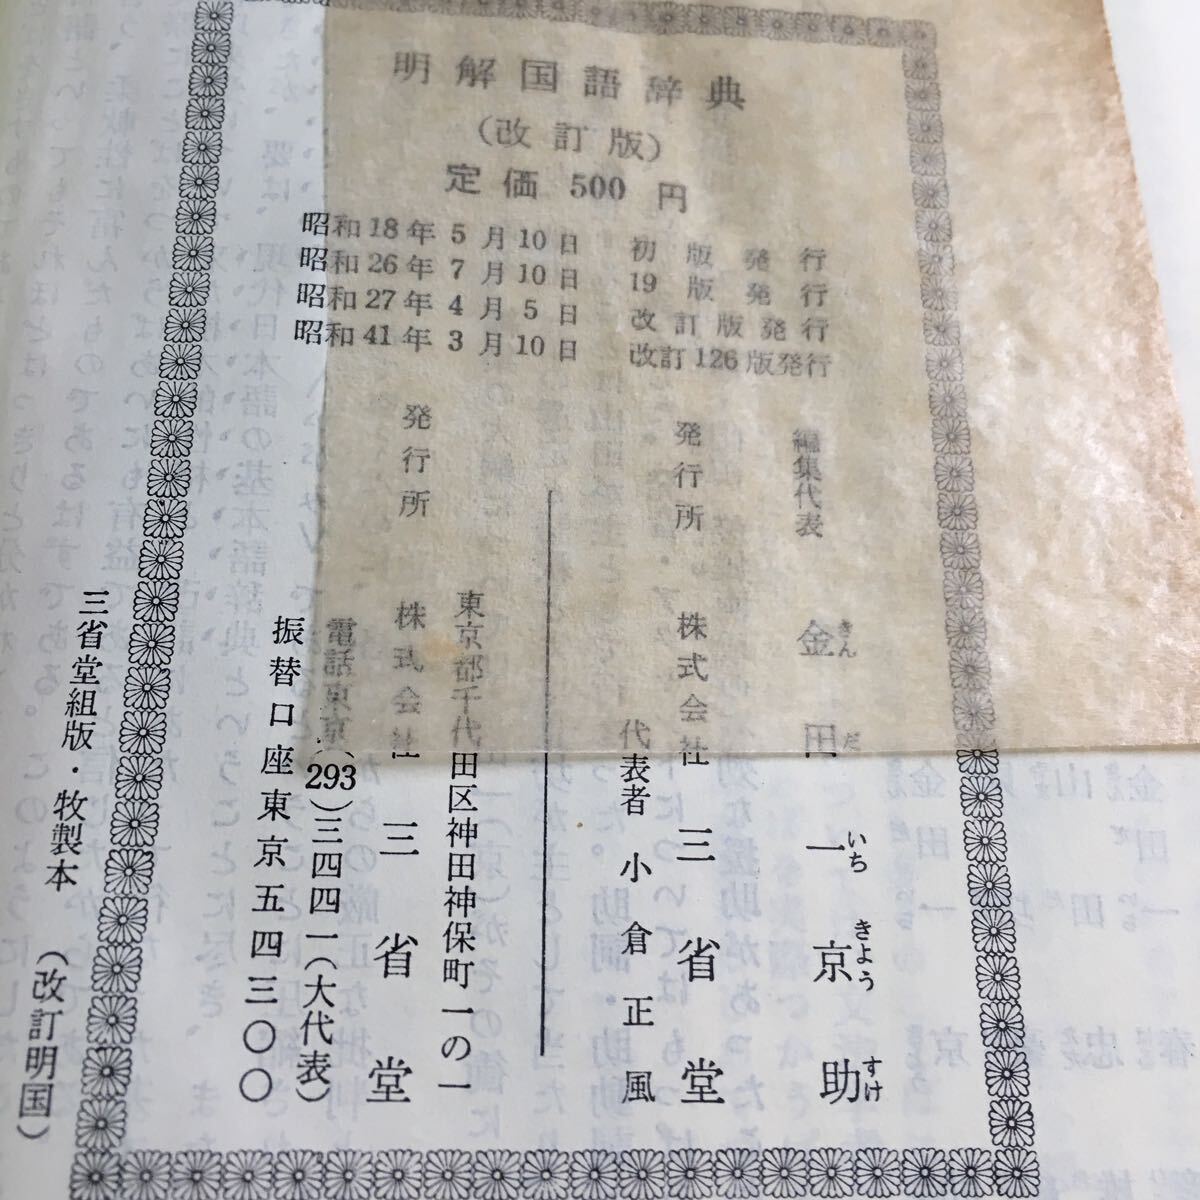 明解国語辞典
(改訂版)
定価 500 円
昭和18年 5 月 10 日 初版発行
昭和26年 7 月 10 日 19 版発行
昭和27年 4 月 5 日 改訂版発行
昭和41年 3 月 10 日 改訂126版発行
編集代表 金田一京助
きん だ いち きよう すけ
発行所 株式会社 三省堂
代表者 小倉正風
東京都千代田区神田神保町一の一
発行所 株式会社 三省堂
電話東京(293)三四四一(大代表)
振替口座東京五四三〇〇
三省堂組版・牧製本 (改訂明国)